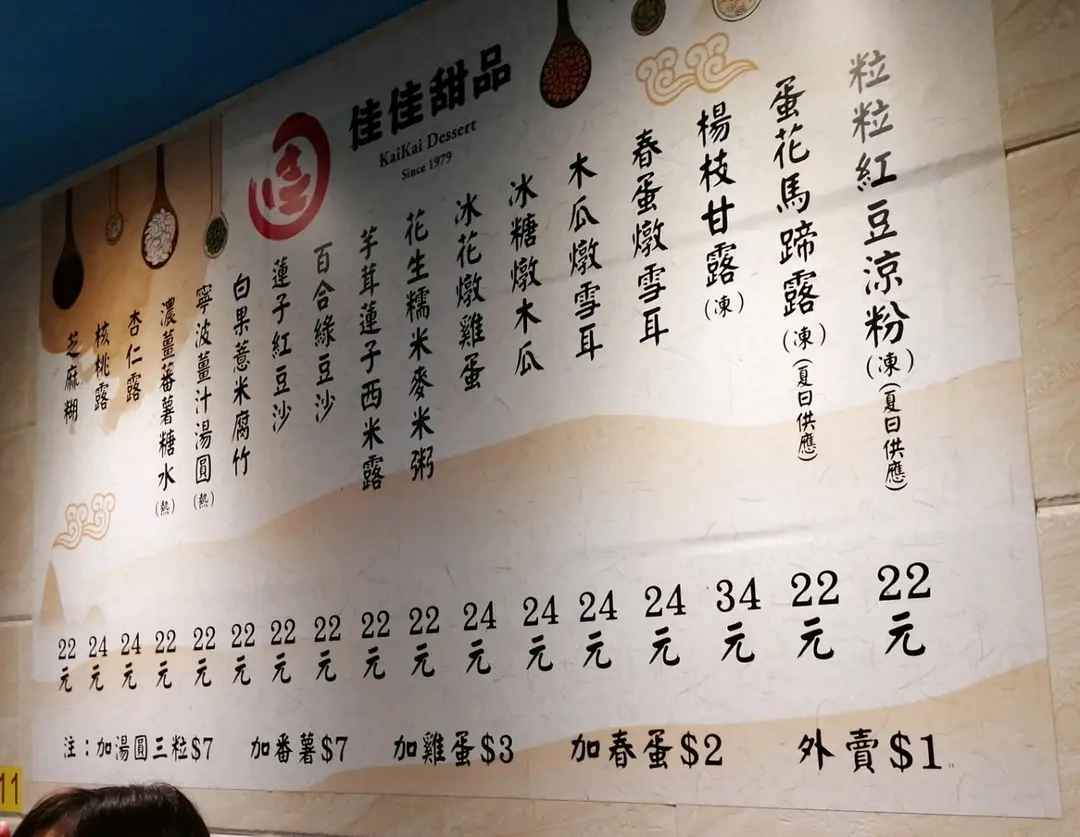 佳佳甜品
KaiKai Dessert
Since 1979
粒粒紅豆涼粉(凍)(夏日供應)
22元
蛋花馬蹄露(凍)(夏日供應)
22元
楊枝甘露(凍)
34元
春蛋燉雪耳
24元
木瓜燉雪耳
24元
冰糖燉木瓜
24元
冰花燉雞蛋
24元
花生糯米麥米粥
22元
芋茸蓮子西米露
22元
百合綠豆沙
22元
蓮子紅豆沙
22元
白果薏米腐竹
22元
寧波薑汁湯圓(熱)
22元
濃薑蕃薯糖水(熱)
22元
杏仁露
24元
核桃露
24元
芝麻糊
22元
注：加湯圓三粒$7
加番薯$7
加雞蛋$3
加春蛋$2
外賣$1
11